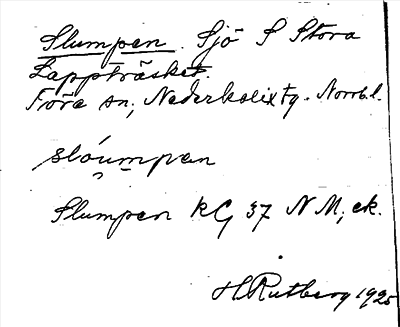 Slumpen. Sjö S Stora
Lappträsket.
Töre sn; Nederkalix tg. Norrb.l.
slóumpen
Slumpen kG 37 N M; ek.
H Rutberg 1925